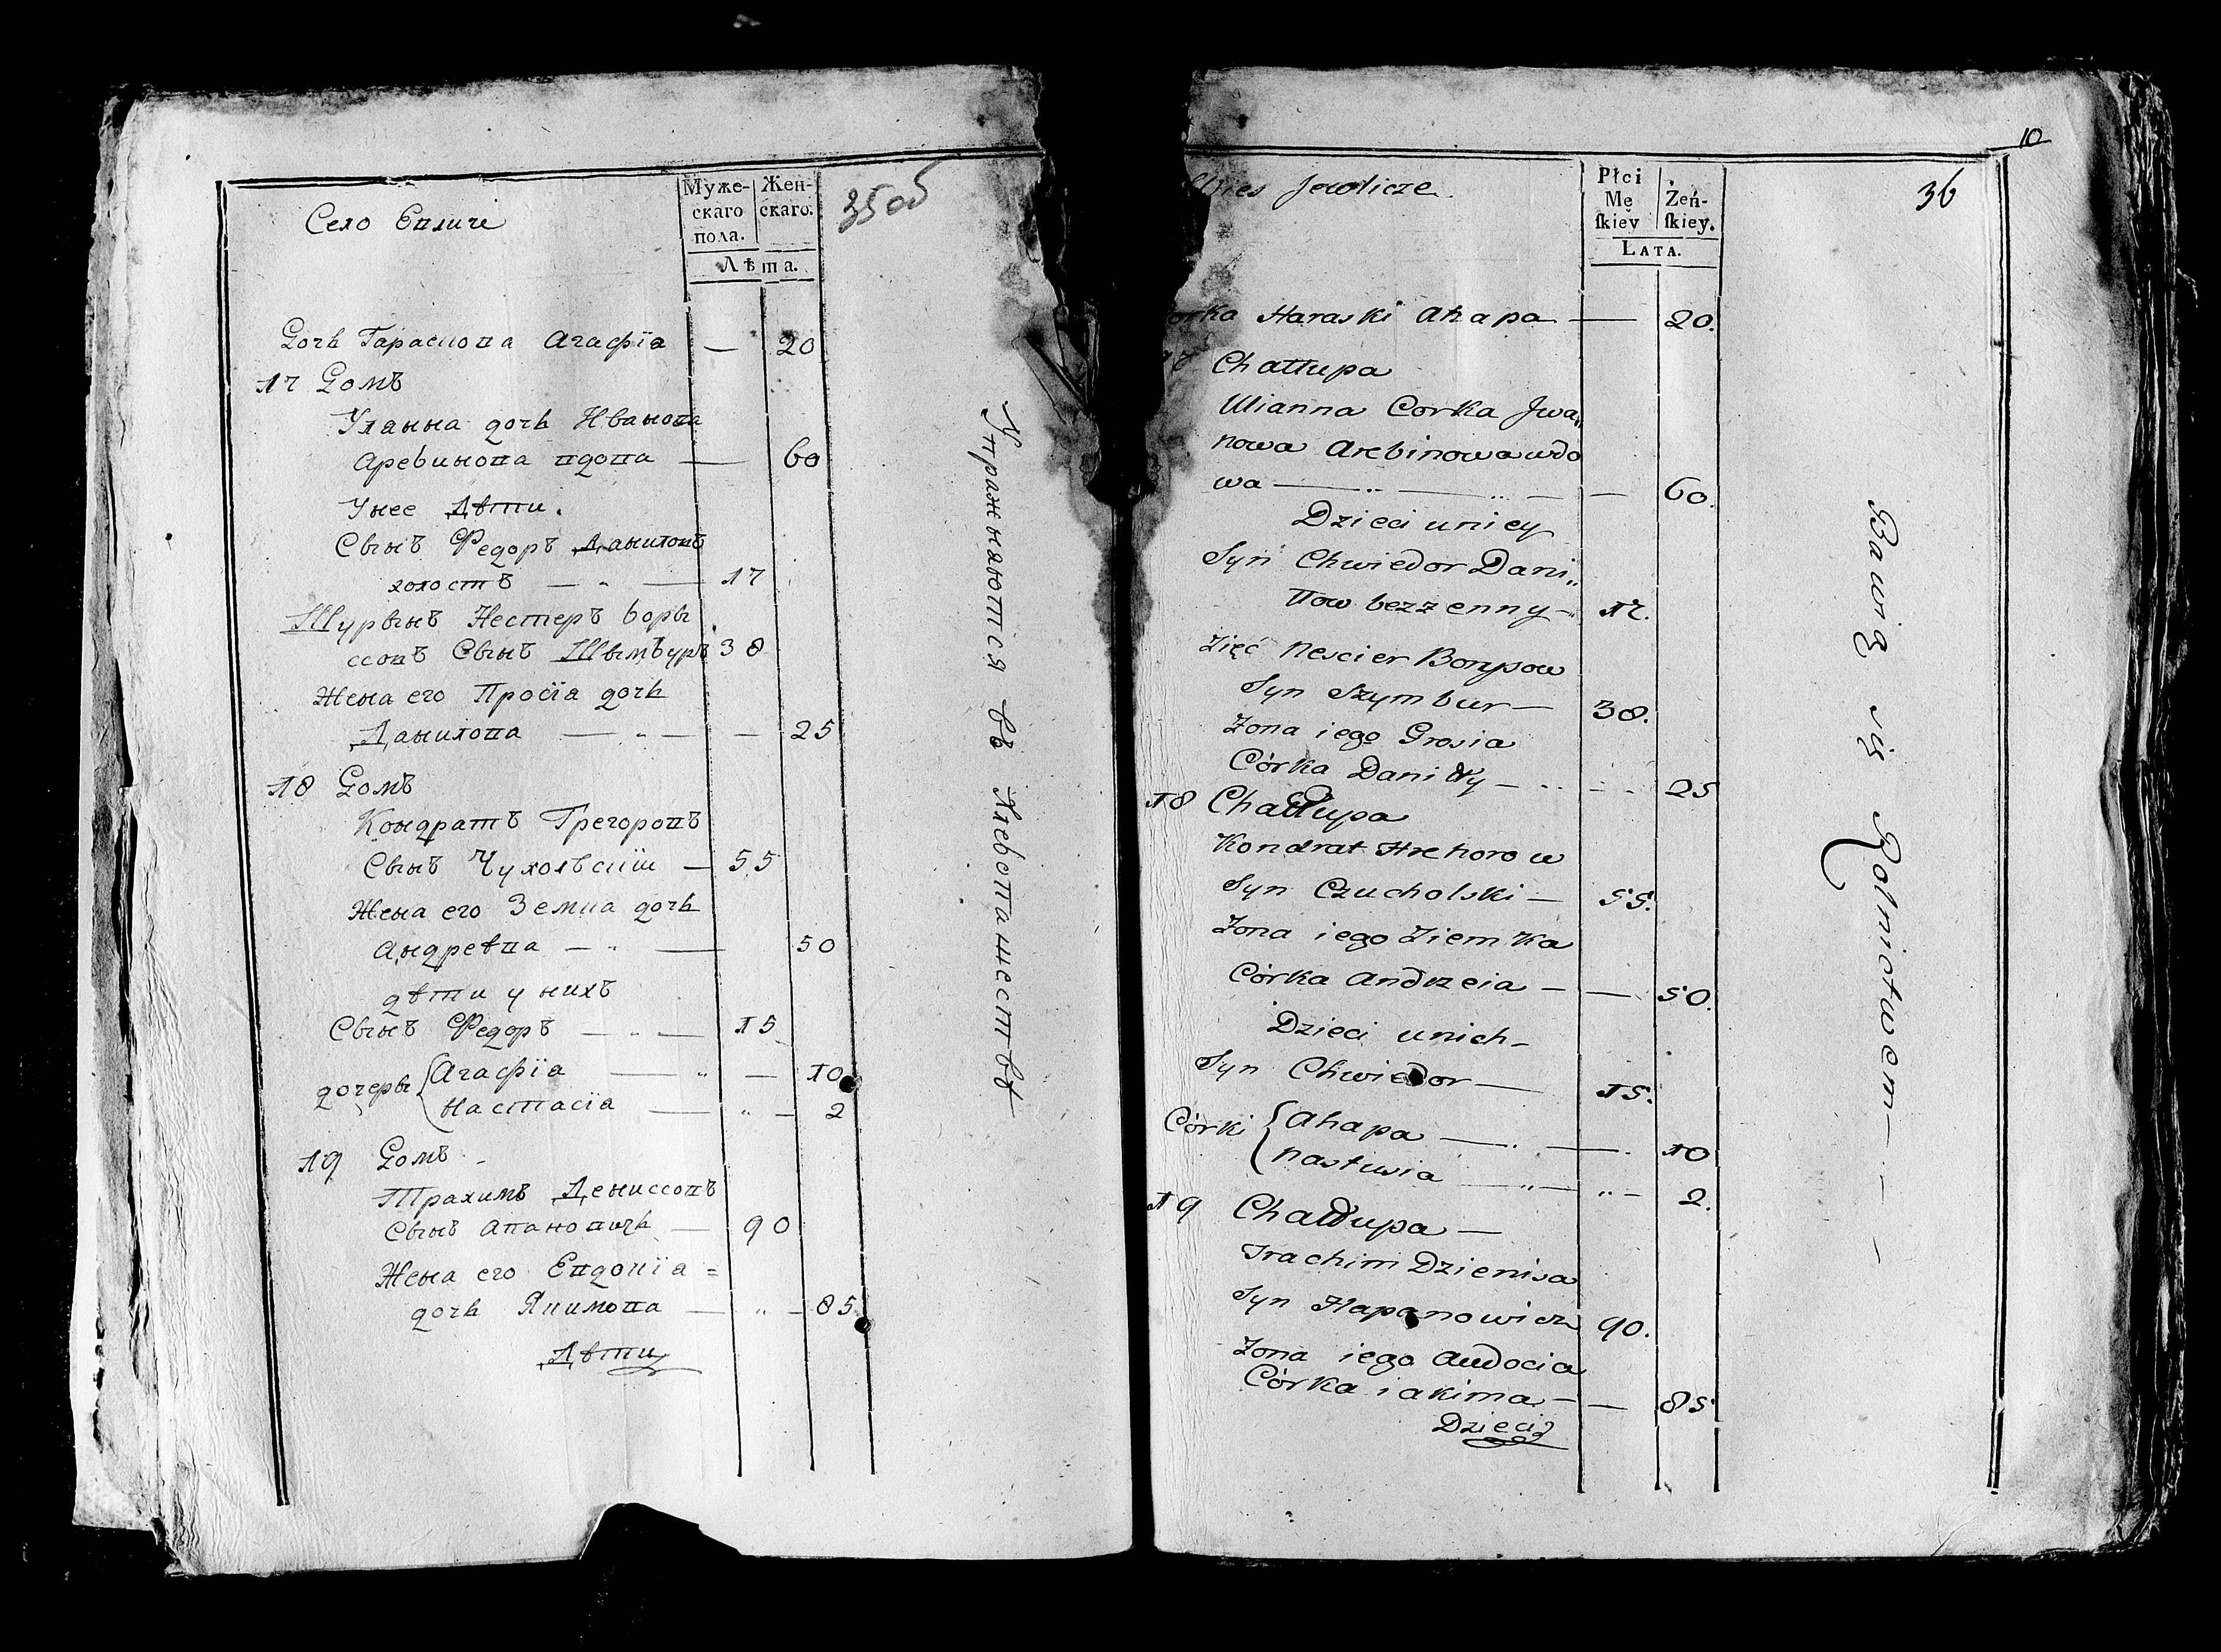 Село Евличѣ
Муже-
скаго
пола.
Жен-
скаго.
Лѣта.
35 об
Дочь Гараскова Агафïа — 20
17 Домъ
Уланна дочь Иванова
Аревинова вдова — 60
Унее Дѣти.
Сынъ Федоръ Даниловъ
холостъ — " — 17
Шурынъ Нестеръ Боры
ссовъ Сынъ Шымъуръ 38
Жена его Просïа дочь
Данилова — " — — 25
18 Домъ
Кондратъ Грегоровъ
Сынъ Чухольскïи — 55
Жена его Земка дочь
Андрева — " — 50
дѣти у нихъ
Сынъ Федоръ — " — 15
дочеры { Агафïа — " — 10
Настасïа — " — 2
19 Домъ -
Трахимъ Дениссовъ
Сынъ Апановичь — 90
Жена его Евдокïа =
дочь Якимова — " — 85
Дѣти
Упражняются въ Хлебопашествѣ
10
36
Jewlicze.
Płci
Mę
ſkiey
Żeń-
ſkiey.
LATA.
Haraski Ahapa — 20.
Chałłupa
Ulianna Corka Jwa„
nowa Arebinowa wdo
wa — " — " — — 60.
Dzieci uniey
Syn Chwiedor Dani„
łłow bezzenny - 17.
Zięć Nescier Borysow
Syn Szymbur — 38.
Zona iego Grosia
Córka Daniłły — " - - 25
18 Chałłupa
Kondrat Hrehorow
Syn Czucholski — 55.
Zona iego Ziemka
Córka Andrzeia — — 50.
Dzieci unich -
Syn Chwiedor — 15.
Córki { Ahapa — " — 10
Nastusia — " — " - 2.
19 Chałłupa —
Trachim Dzienisa
Syn Hapanowicz 90.
Zona iego Audocia
Córka iakima — — 85
Dzieci
Bawią się Rolnictwem — - — -